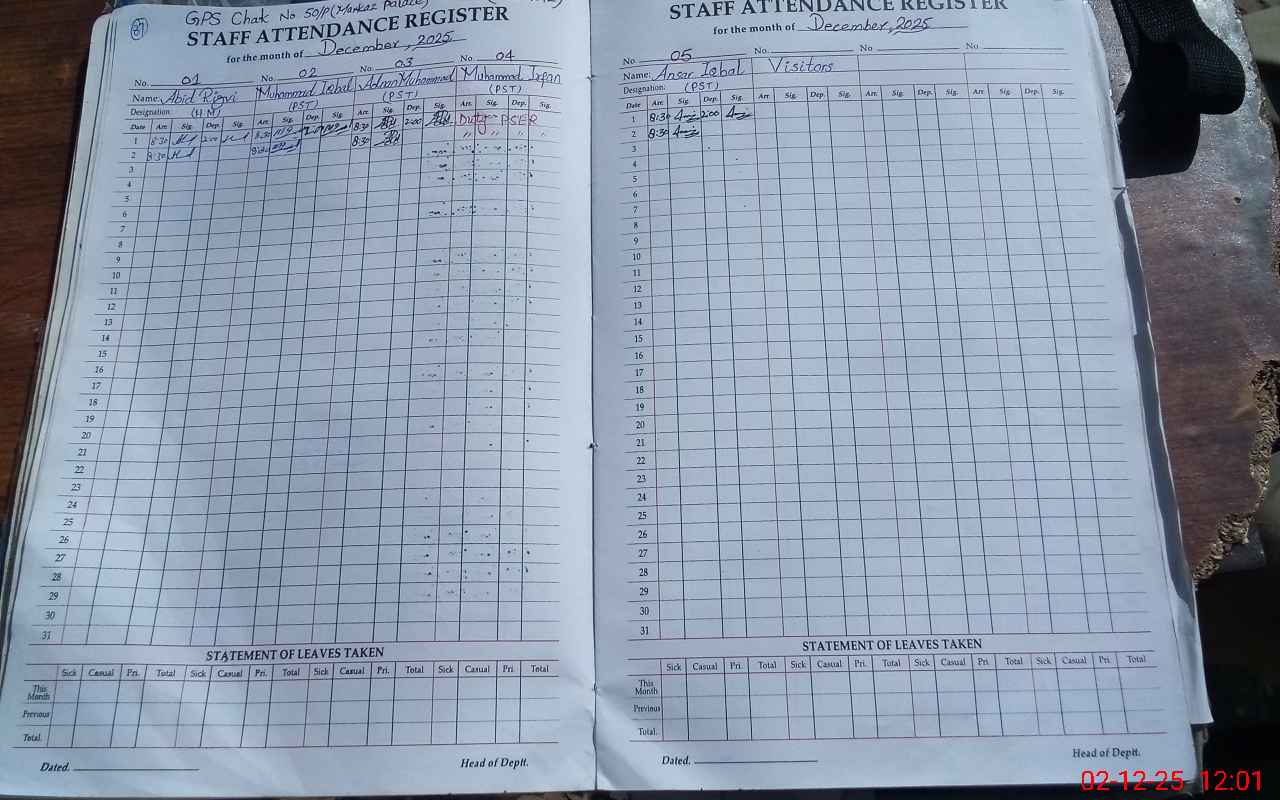 87
GPS Chak No 50/P (Markaz Palace)
STAFF ATTENDANCE REGISTER
for the month of December, 2025
No. 01 No. 02 No. 03 No. 04
Name: Abid Rizvi Muhammad Iqbal Adnan Muhammad Muhammad Irfan
Designation: (HM) (PST) (PST) (PST)
Date Arr. Sig. Dep. Sig. Arr. Sig. Dep. Sig. Arr. Sig. Dep. Sig. Arr. Sig. Dep. Sig.
1 8:30 2:00 8:30 2:00 8:30 2:00 Duty PSER
2 8:30 8:30 8:30 " " " "
3
4
5
6
7
8
9
10
11
12
13
14
15
16
17
18
19
20
21
22
23
24
25
26
27
28
29
30
31
STATEMENT OF LEAVES TAKEN
Sick Casual Pri. Total Sick Casual Pri. Total Sick Casual Pri. Total Sick Casual Pri. Total
This Month
Previous
Total.
Dated. Head of Deptt.
STAFF ATTENDANCE REGISTER
for the month of December, 2025
No. 05 No. No. No.
Name: Ansar Iqbal Visitors
Designation: (PST)
Date Arr. Sig. Dep. Sig. Arr. Sig. Dep. Sig. Arr. Sig. Dep. Sig. Arr. Sig. Dep. Sig.
1 8:30 2:00
2 8:30
3
4
5
6
7
8
9
10
11
12
13
14
15
16
17
18
19
20
21
22
23
24
25
26
27
28
29
30
31
STATEMENT OF LEAVES TAKEN
Sick Casual Pri. Total Sick Casual Pri. Total Sick Casual Pri. Total Sick Casual Pri. Total
This Month
Previous
Total.
Dated. Head of Deptt.
02-12-25 12:01